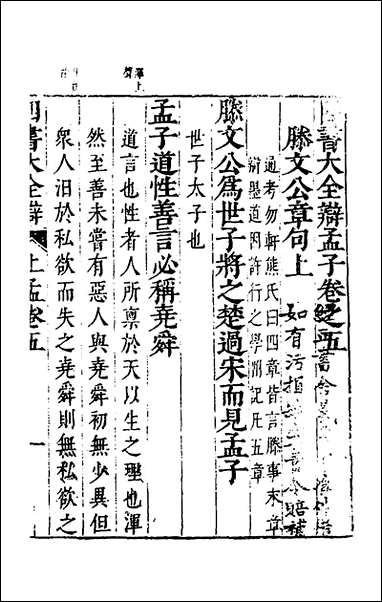 四書大全辯孟子卷之五
滕文公章句上
通考勿軒熊氏曰四章皆言滕事末章
辯墨道因許行之學附記凡五章
滕文公爲世子將之楚過宋而見孟子
世子太子也
孟子道性善言必稱堯舜
道言也性者人所禀於天以生之理也渾
然至善未嘗有惡人與堯舜初無少異但
衆人汨於私欲而失之堯舜則無私欲之
四書大全辯 上孟卷五 一
如有污損
賠補